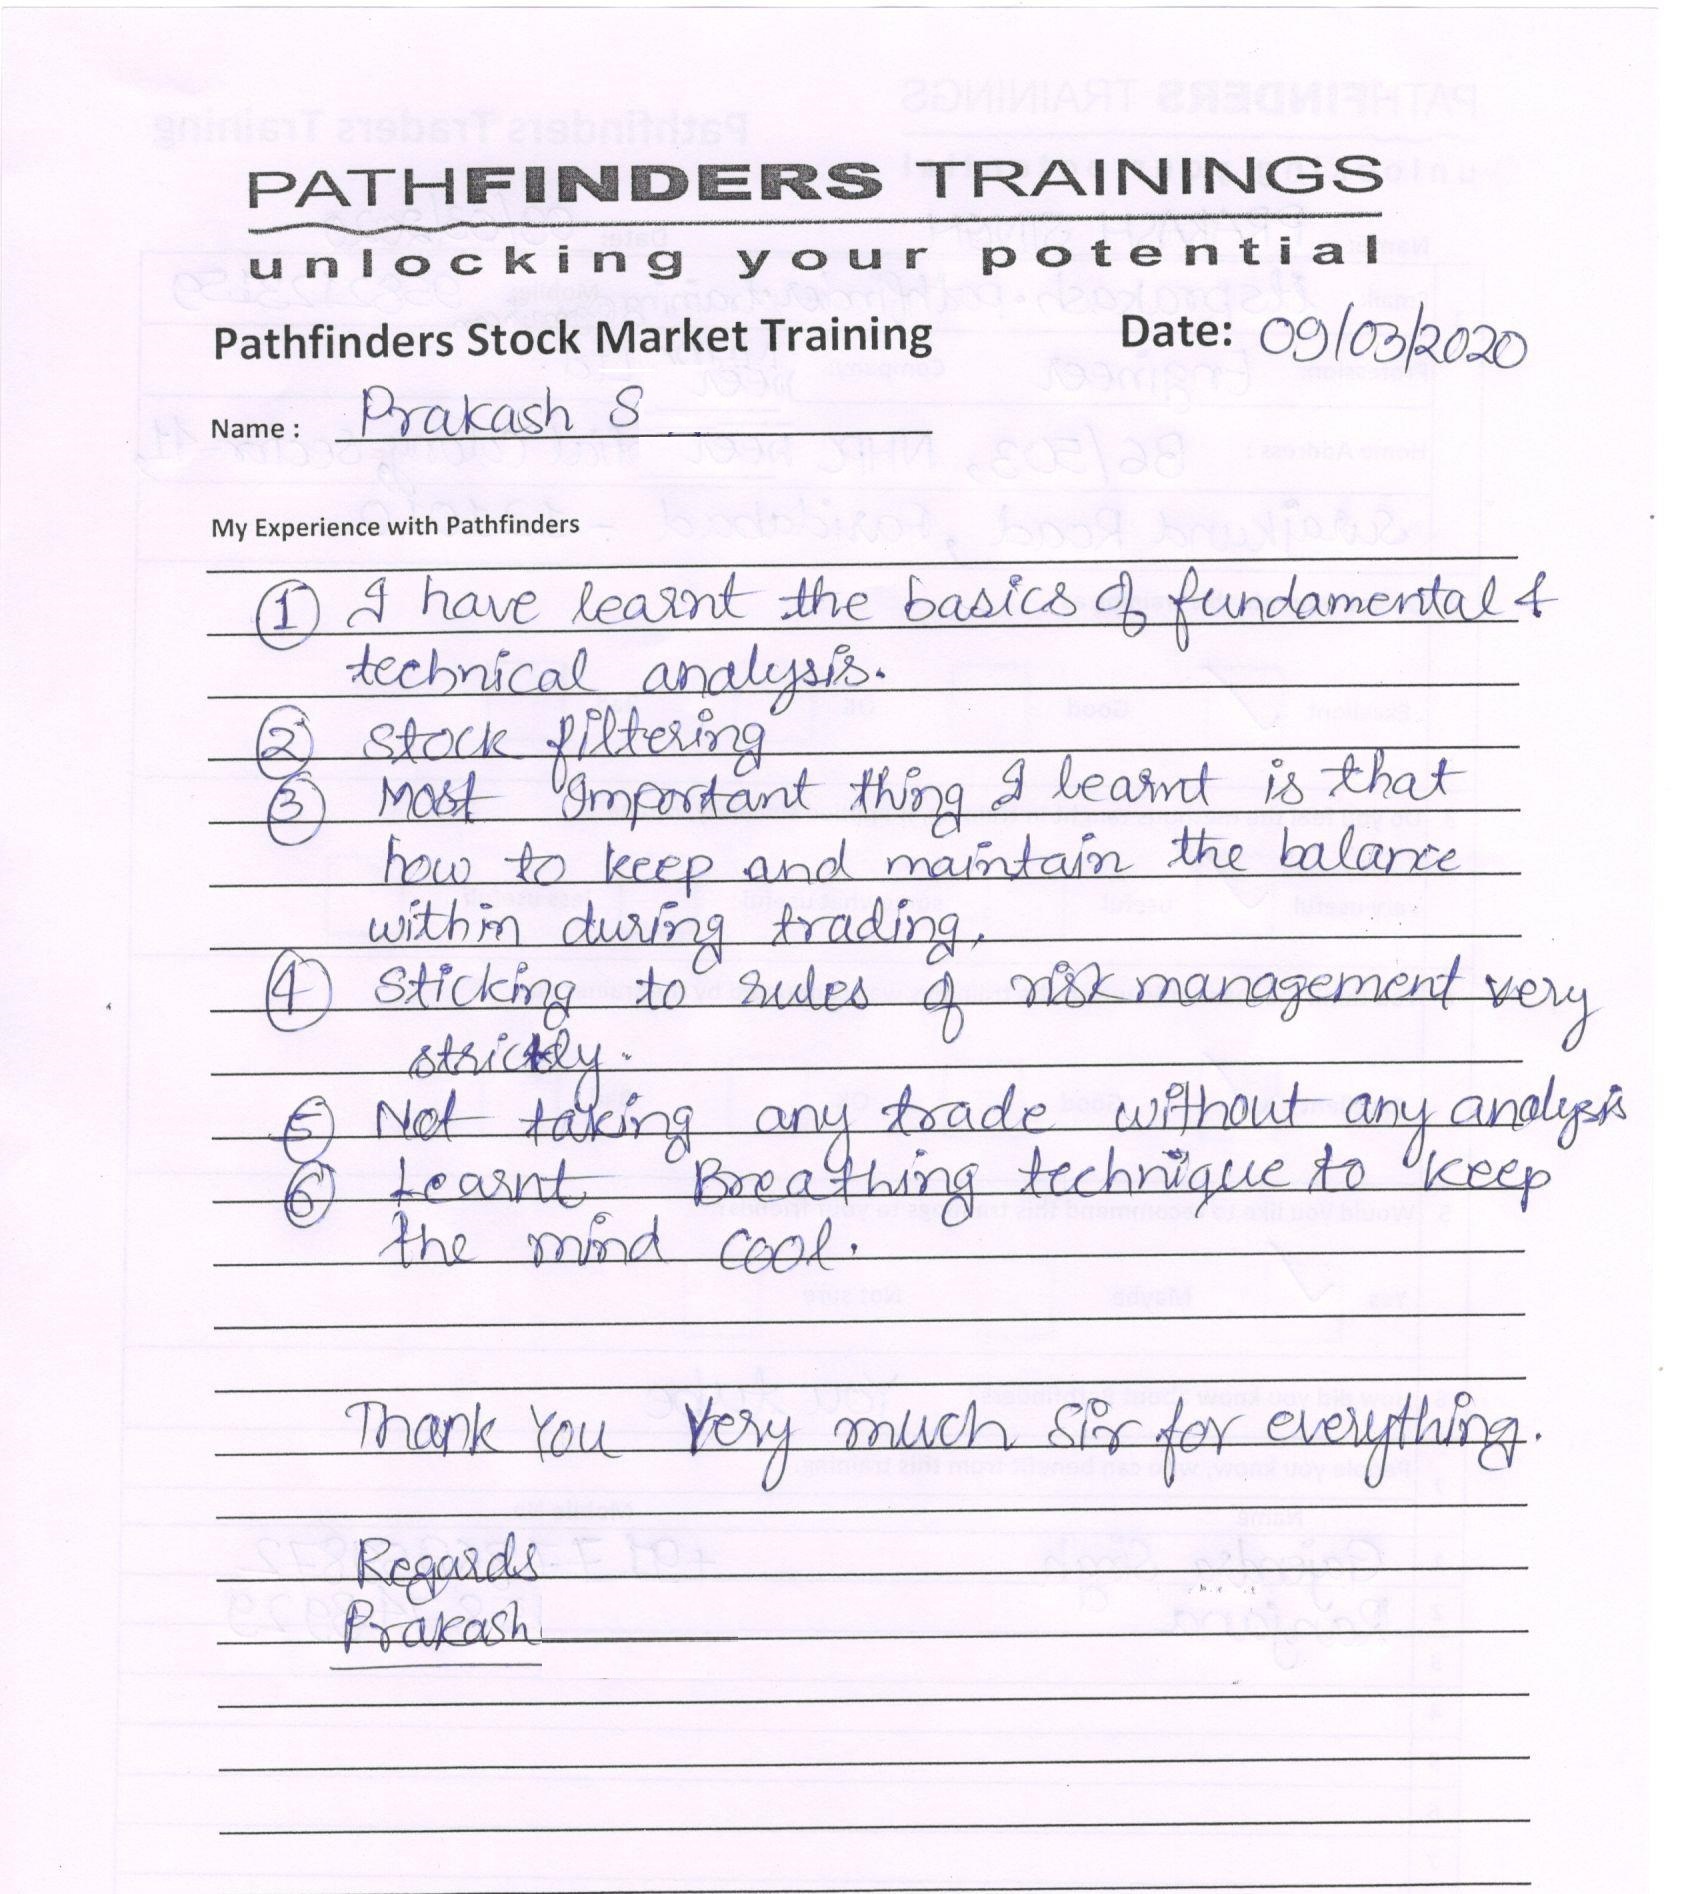 PATHFINDERS TRAININGS
unlocking your potential
Pathfinders Stock Market Training Date: 09/03/2020
Name : Prakash S
My Experience with Pathfinders
① I have learnt the basics of fundamental &
technical analysis.
② Stock filtering
③ Most Important thing I learnt is that
how to keep and maintain the balance
within during trading.
④ Sticking to rules of risk management very
strictly.
⑤ Not taking any trade without any analysis
⑥ Learnt Breathing technique to keep
the mind cool.
Thank You Very much Sir for everything.
Regards
Prakash